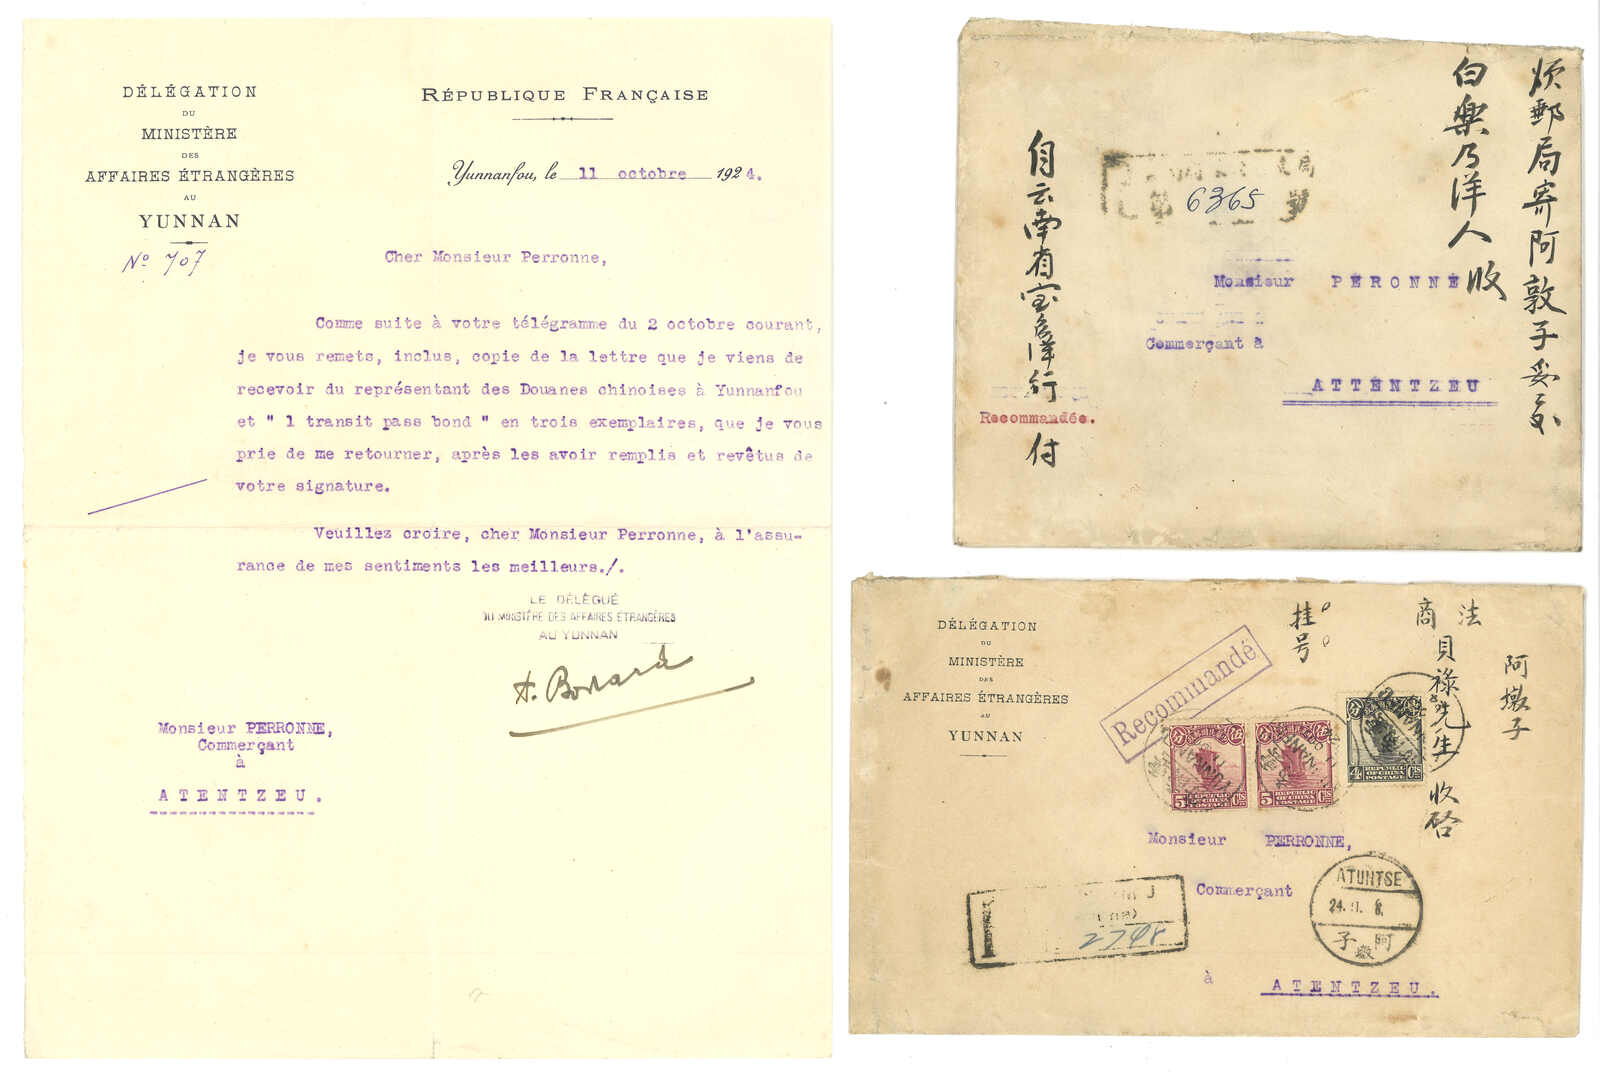 DÉLÉGATION
DU
MINISTÈRE
DES
AFFAIRES ÉTRANGÈRES
AU
YUNNAN
Nº 707
RÉPUBLIQUE FRANÇAISE
Yunnanfou, le 11 octobre 1924.
Cher Monsieur Perronne,
Comme suite à votre télégramme du 2 octobre courant,
je vous remets, inclus, copie de la lettre que je viens de
recevoir du représentant des Douanes chinoises à Yunnanfou
et " 1 transit pass bond " en trois exemplaires, que je vous
prie de me retourner, après les avoir remplis et revêtus de
votre signature.
Veuillez croire, cher Monsieur Perronne, à l'assu-
rance de mes sentiments les meilleurs./.
LE DÉLÉGUÉ
DU MINISTÈRE DES AFFAIRES ETRANGÈRES
AU YUNNAN
Monsieur PERRONNE,
Commerçant
à
ATENTZEU.
煩郵局寄阿敦子妥交
白樂乃洋人收
自云南省宝多洋行付
局
第 6365 號
Monsieur PERONNE
Commerçant à
ATTENTZEU
Recommandée.
DÉLÉGATION
DU
MINISTÈRE
DES
AFFAIRES ÉTRANGÈRES
AU
YUNNAN
Recommandé
挂号
法商
貝祿先生收啓
阿墩子
5 REPUBLIC OF CHINA POSTAGE Cts
5 REPUBLIC OF CHINA POSTAGE Cts
4 REPUBLIC OF CHINA POSTAGE Cts
Monsieur PERRONNE,
Commerçant
à
ATENTZEU.
2748
ATUNTSE
24.11.8.
子墩阿